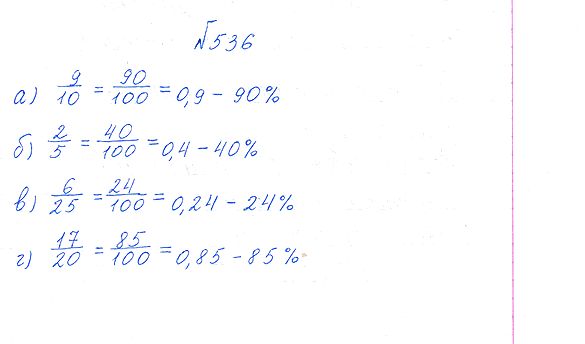 №536
а) 9/10 = 90/100 = 0,9 – 90%
б) 2/5 = 40/100 = 0,4 – 40%
в) 6/25 = 24/100 = 0,24 – 24%
г) 17/20 = 85/100 = 0,85 – 85%